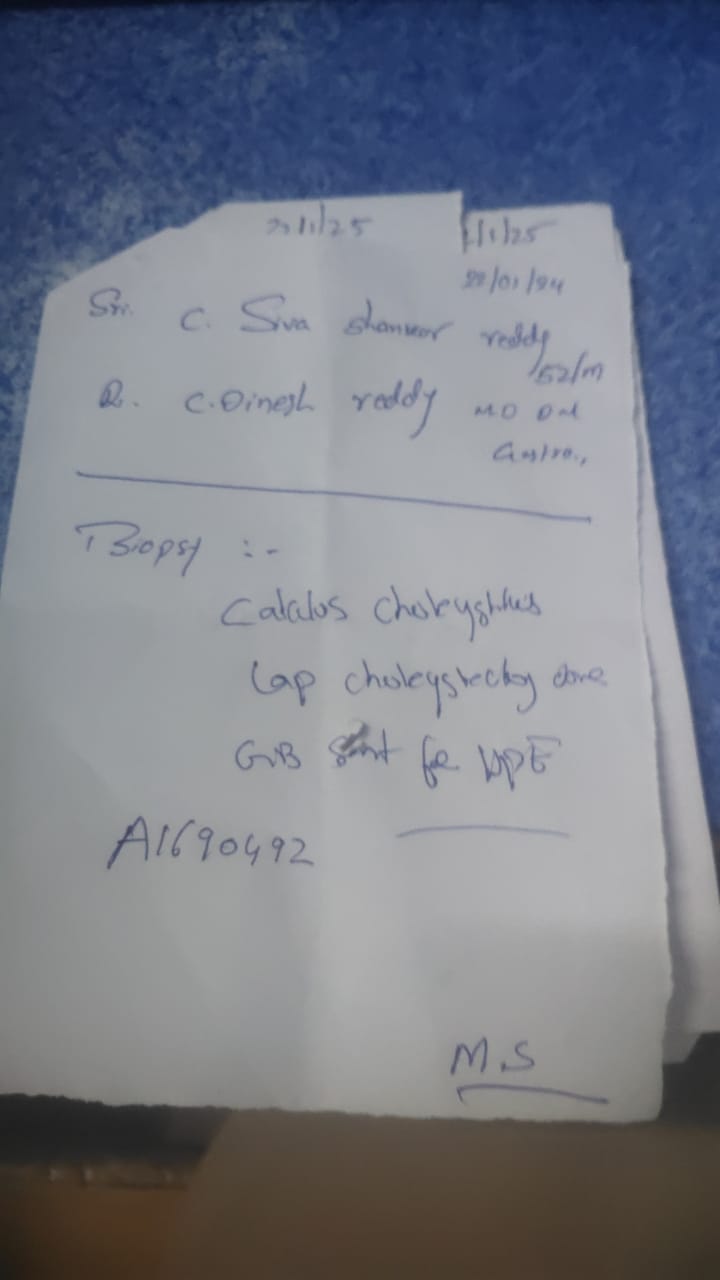 22/1/25
/1/25
22/01/24
Sri. C. Siva shankar reddy
52/m
Q. C. Dinesh reddy MD DM
Gastro.,
Biopsy :-
Calculus choleystitis
Lap choleystectoy done
GB Sent for HPE
A1690492
M.S